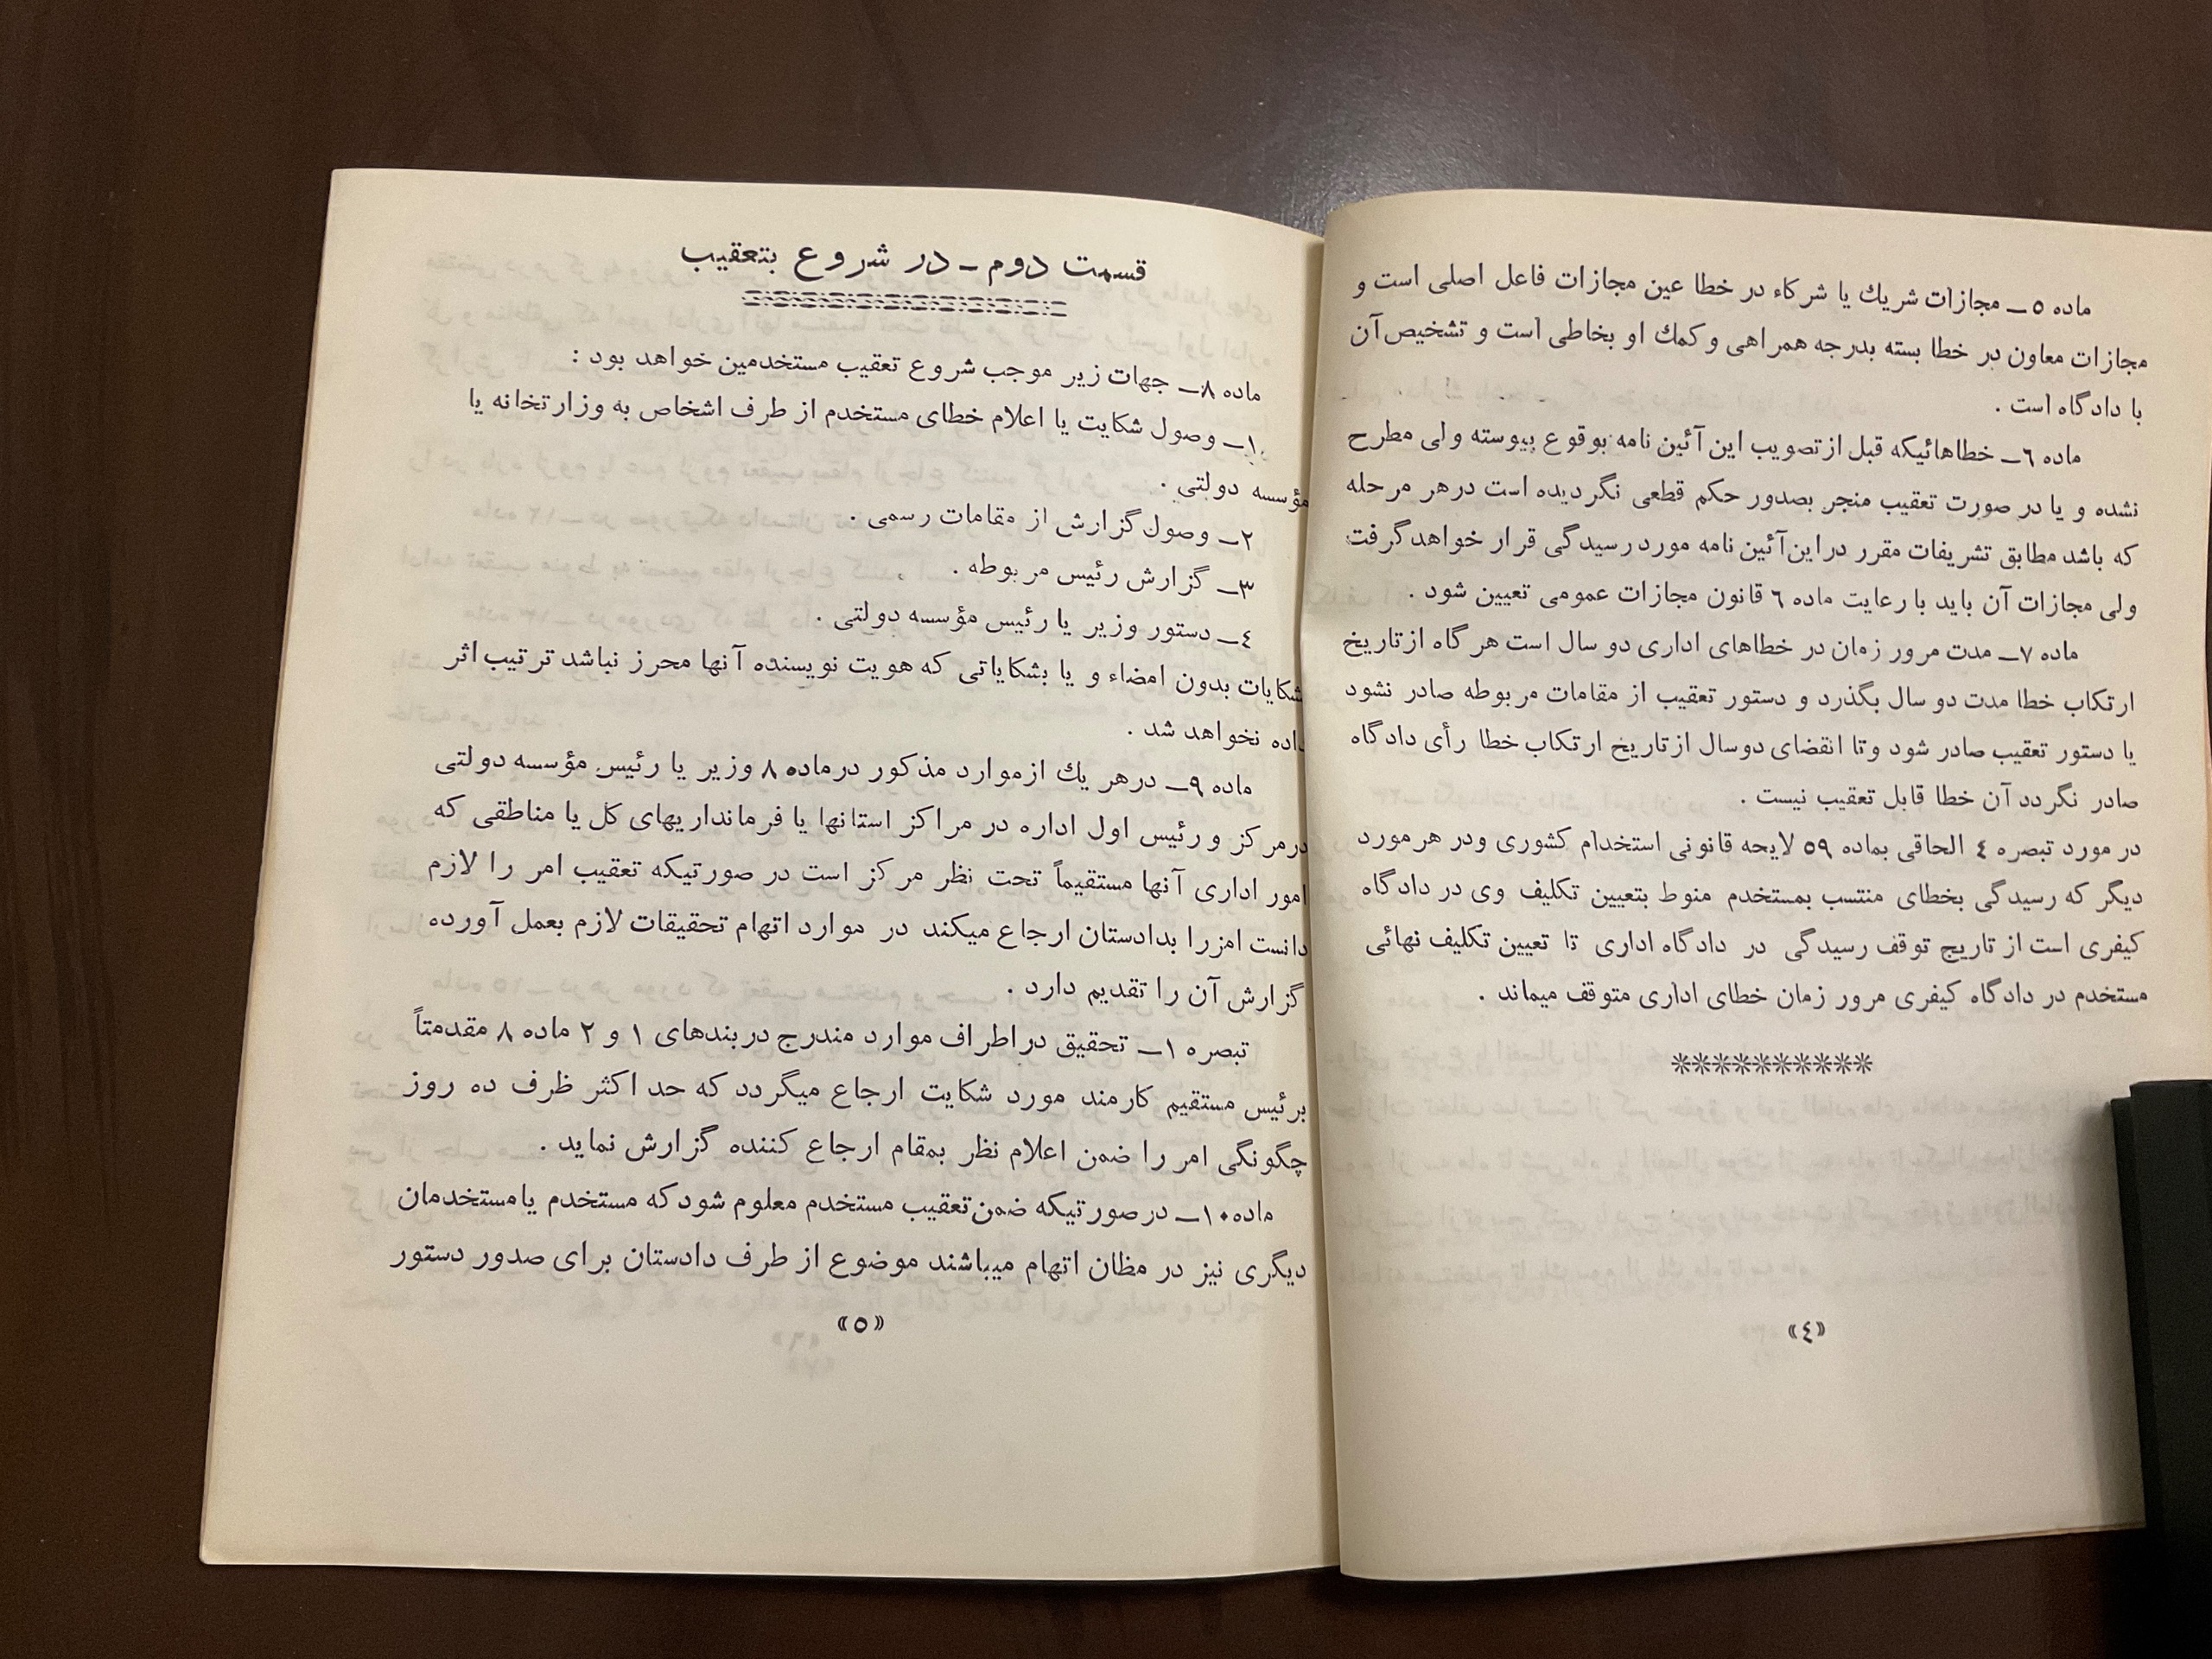 ماده ٥ــ مجازات شريك يا شركاء در خطا عين مجازات فاعل اصلى است و
مجازات معاون در خطا بسته بدرجه همراهى و كمك او بخاطى است و تشخيص آن
با دادگاه است .
ماده ٦ــ خطاهائيكه قبل از تصويب اين آئين نامه بوقوع پيوسته ولى مطرح
نشده و يا در صورت تعقيب منجر بصدور حكم قطعى نگرديده است در هر مرحله
كه باشد مطابق تشريفات مقرر در اين آئين نامه مورد رسيدگى قرار خواهد گرفت
ولى مجازات آن بايد با رعايت ماده ٦ قانون مجازات عمومى تعيين شود .
ماده ٧ــ مدت مرور زمان در خطاهاى ادارى دو سال است هر گاه از تاريخ
ارتكاب خطا مدت دو سال بگذرد و دستور تعقيب از مقامات مربوطه صادر نشود
يا دستور تعقيب صادر شود و تا انقضاى دو سال از تاريخ ارتكاب خطا رأى دادگاه
صادر نگردد آن خطا قابل تعقيب نيست .
در مورد تبصره ٤ الحاقى بماده ٥٩ لايحه قانونى استخدام كشورى و در هر مورد
ديگر كه رسيدگى بخطاى منتسب بمستخدم منوط بتعيين تكليف وى در دادگاه
كيفرى است از تاريج توقف رسيدگى در دادگاه ادارى تا تعيين تكليف نهائى
مستخدم در دادگاه كيفرى مرور زمان خطاى ادارى متوقف ميماند .
**********
«٤»
قسمت دوم ــ در شروع بتعقيب
ماده ٨ــ جهات زير موجب شروع تعقيب مستخدمين خواهد بود :
١ــ وصول شكايت يا اعلام خطاى مستخدم از طرف اشخاص به وزارتخانه يا
مؤسسه دولتى .
٢ــ وصول گزارش از مقامات رسمى .
٣ــ گزارش رئيس مربوطه .
٤ــ دستور وزير يا رئيس مؤسسه دولتى .
شكايات بدون امضاء و يا بشكاياتى كه هويت نويسنده آنها محرز نباشد ترتيب اثر
داده نخواهد شد .
ماده ٩ــ در هر يك از موارد مذكور در ماده ٨ وزير يا رئيس مؤسسه دولتى
در مركز و رئيس اول اداره در مراكز استانها يا فرمانداريهاى كل يا مناطقى كه
امور ادارى آنها مستقيماً تحت نظر مركز است در صورتيكه تعقيب امر را لازم
دانست امر را بدادستان ارجاع ميكند در موارد اتهام تحقيقات لازم بعمل آورده
گزارش آن را تقديم دارد .
تبصره ١ــ تحقيق در اطراف موارد مندرج در بندهاى ١ و ٢ ماده ٨ مقدمتاً
برئيس مستقيم كارمند مورد شكايت ارجاع ميگردد كه حد اكثر ظرف ده روز
چگونگى امر را ضمن اعلام نظر بمقام ارجاع كننده گزارش نمايد .
ماده ١٠ــ در صورتيكه ضمن تعقيب مستخدم معلوم شود كه مستخدم يا مستخدمان
ديگرى نيز در مظان اتهام ميباشند موضوع از طرف دادستان براى صدور دستور
«٥»